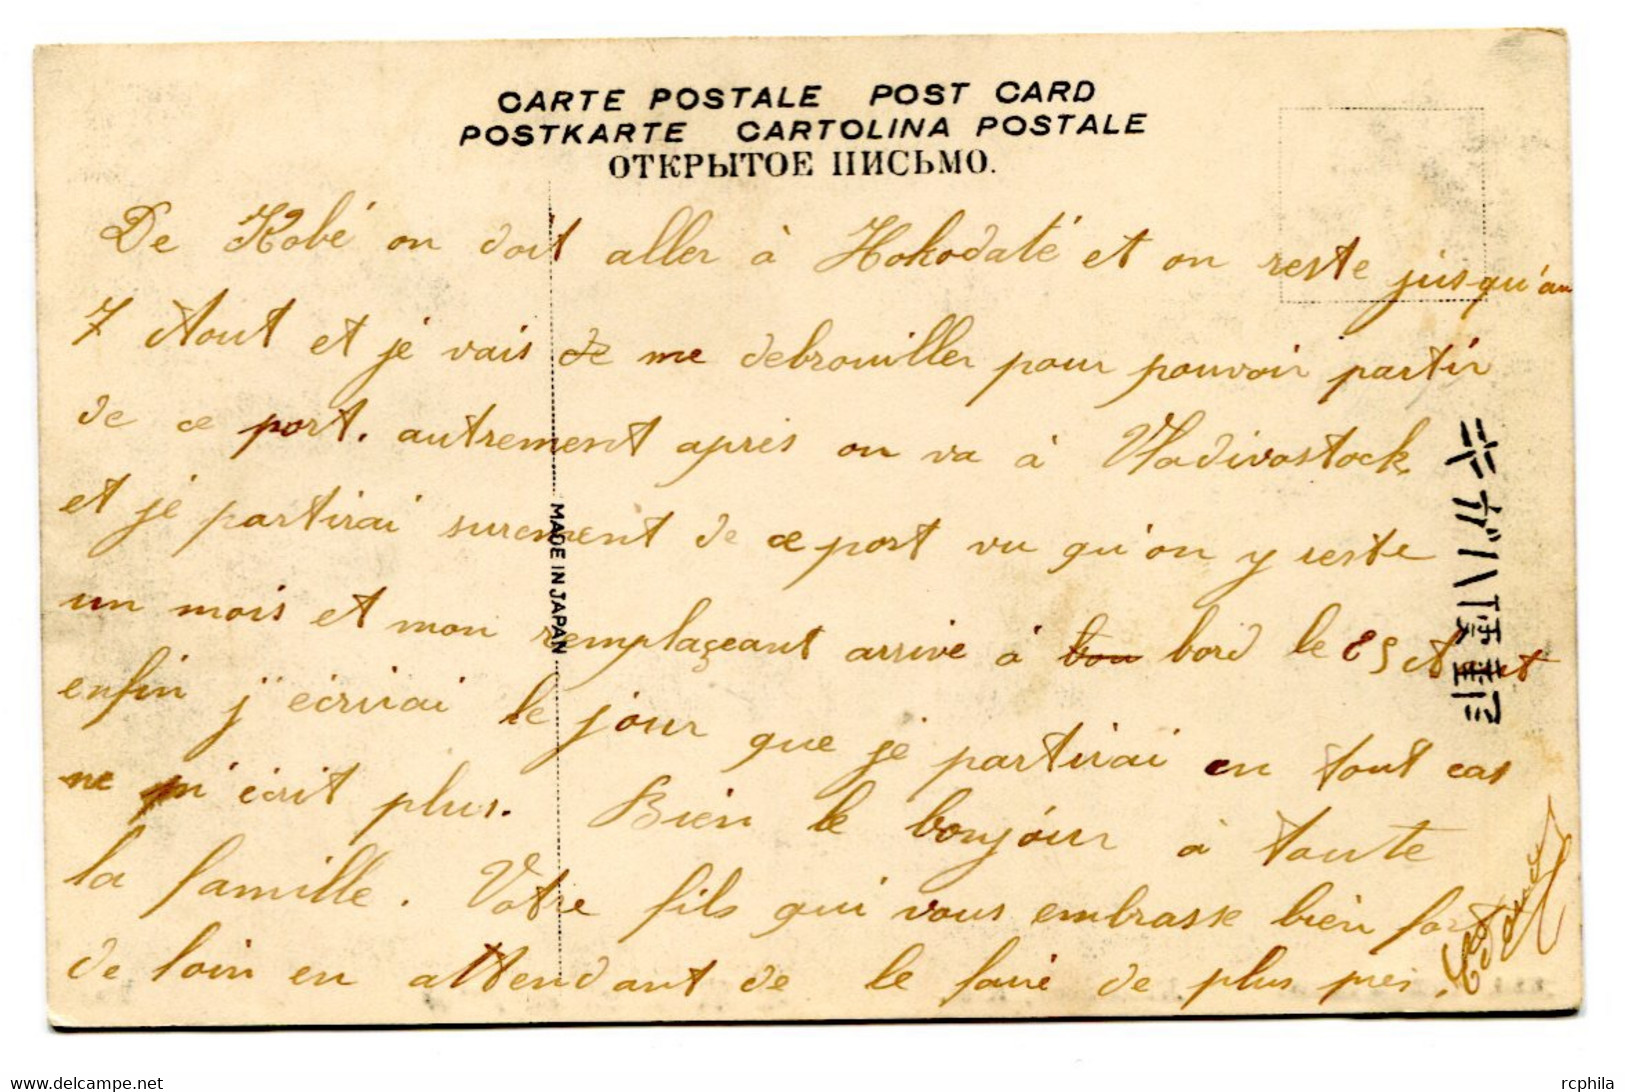 CARTE POSTALE POST CARD
POSTKARTE CARTOLINA POSTALE
ОТКРЫТОЕ ПИСЬМО.
De Kobé on doit aller à Hokodaté et on reste jusqu'au
7 Aout et je vais de me debrouiller pour pouvoir partir
de ce port. autrement après on va à Vladivostock
et je partirai surement de ce port vu qu'on y reste
un mois et mon remplaçeant arrive à bon bord le Aout
enfin j'écrirai le jour que je partirai en tout cas
ne m'écrit plus. Bien le bonjour à toute
la famille. Votre fils qui vous embrasse bien fort
de loin en attendant de le faire de plus près.
MADE IN JAPAN
rcphila
www.delcampe.net